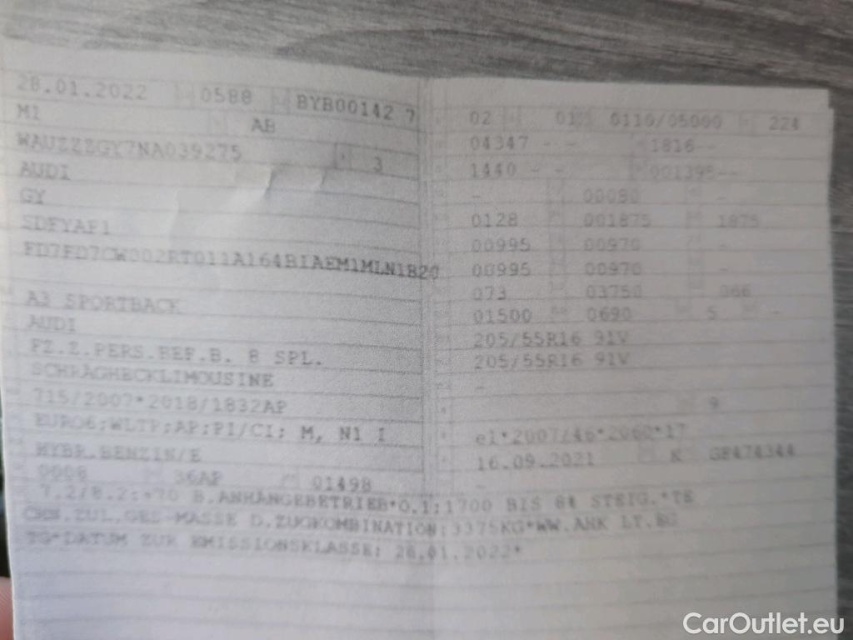 28.01.2022 0588 BYB00142 7
M1 AB
WAUZZZGY7NA039275 3
AUDI
GY
SDFYAF1
FD7FD7CW002RT011A164BIAEM1MLN1B20
A3 SPORTBACK
AUDI
FZ.Z.PERS.BEF.B. 8 SPL.
SCHRÄGHECKLIMOUSINE
715/2007*2018/1832AP
EURO6;WLTP;AP;PI/CI; M, N1 I
HYBR.BENZIN/E
0008 36AP 01498
02 01 0110/05000 224
04347 - - 1816-
1440 - - 001395--
- 00090 -
0128 001875 1875
00995 00970 -
00995 00970 -
073 03750 066
01500 0690 5 -
205/55R16 91V
205/55R16 91V
-
9
e1*2007/46*2060*17
16.09.2021 K GE474344
7.2/8.2:+70 B.ANHÄNGEBETRIEB*O.1:1700 BIS 8% STEIG.*TE
CHN.ZUL.GES-MASSE D.ZUGKOMBINATION:3375KG*WW.AHK LT.EG
TG*DATUM ZUR EMISSIONSKLASSE: 28.01.2022*
CarOutlet.eu